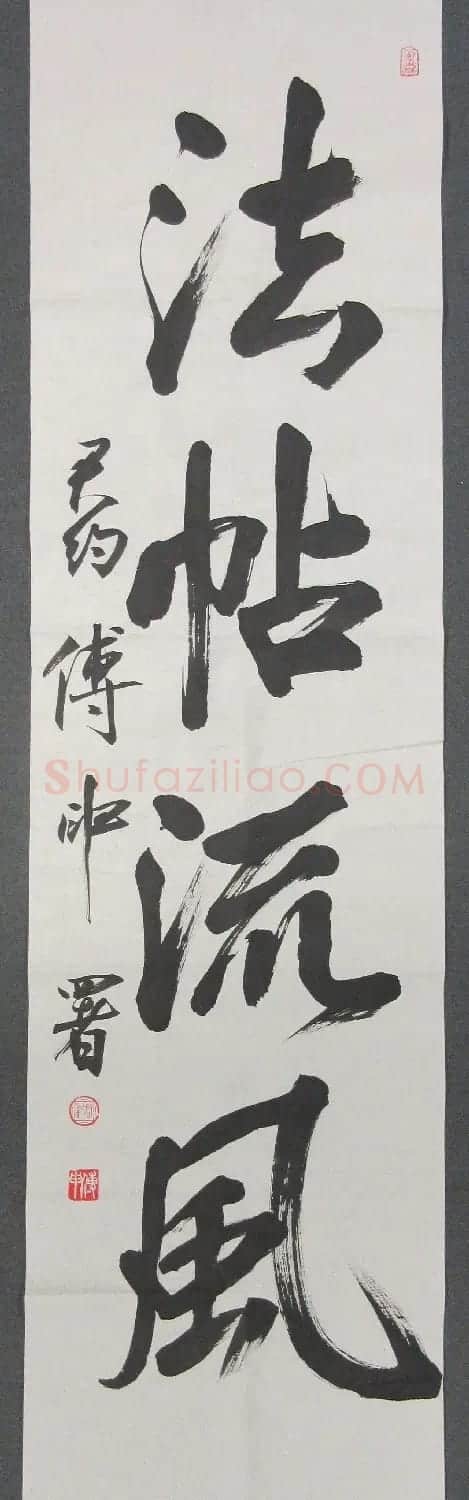 法帖流風
君約傅申署
Shufaziliao.COM
傅申